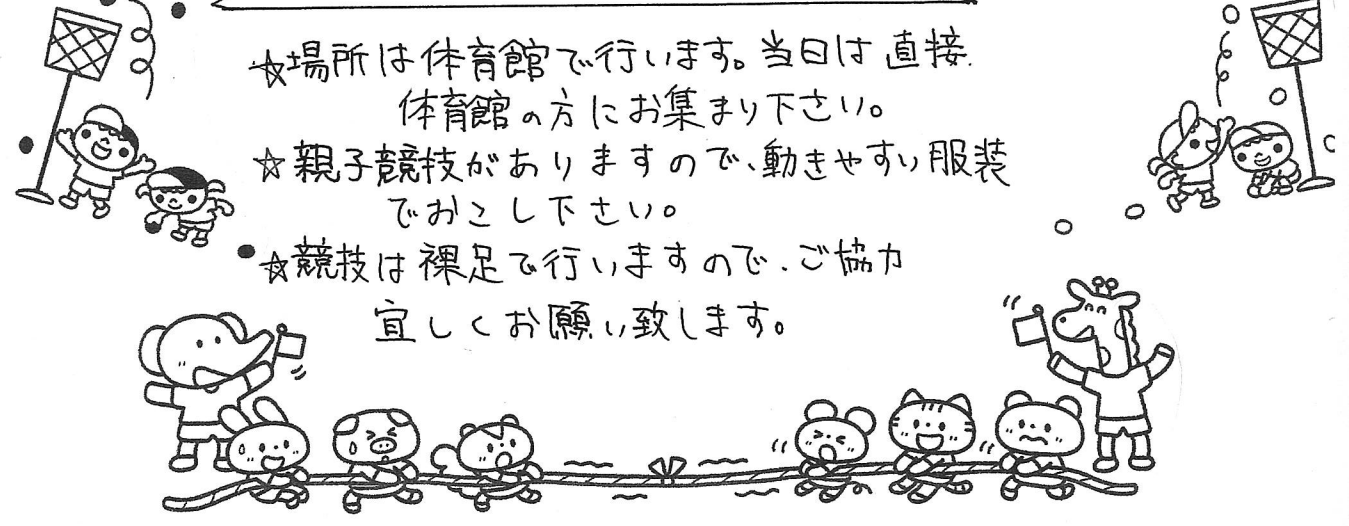 ☆場所は体育館で行います。当日は直接
体育館の方にお集まり下さい。
☆親子競技がありますので、動きやすい服装
でおこし下さい。
☆競技は裸足で行いますので、ご協力
宜しくお願い致します。